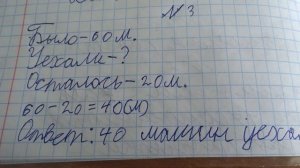 № 3
Было-60м.
Уехали-?
Осталось-20м.
60-20=40(м)
Ответ: 40 машин уехали